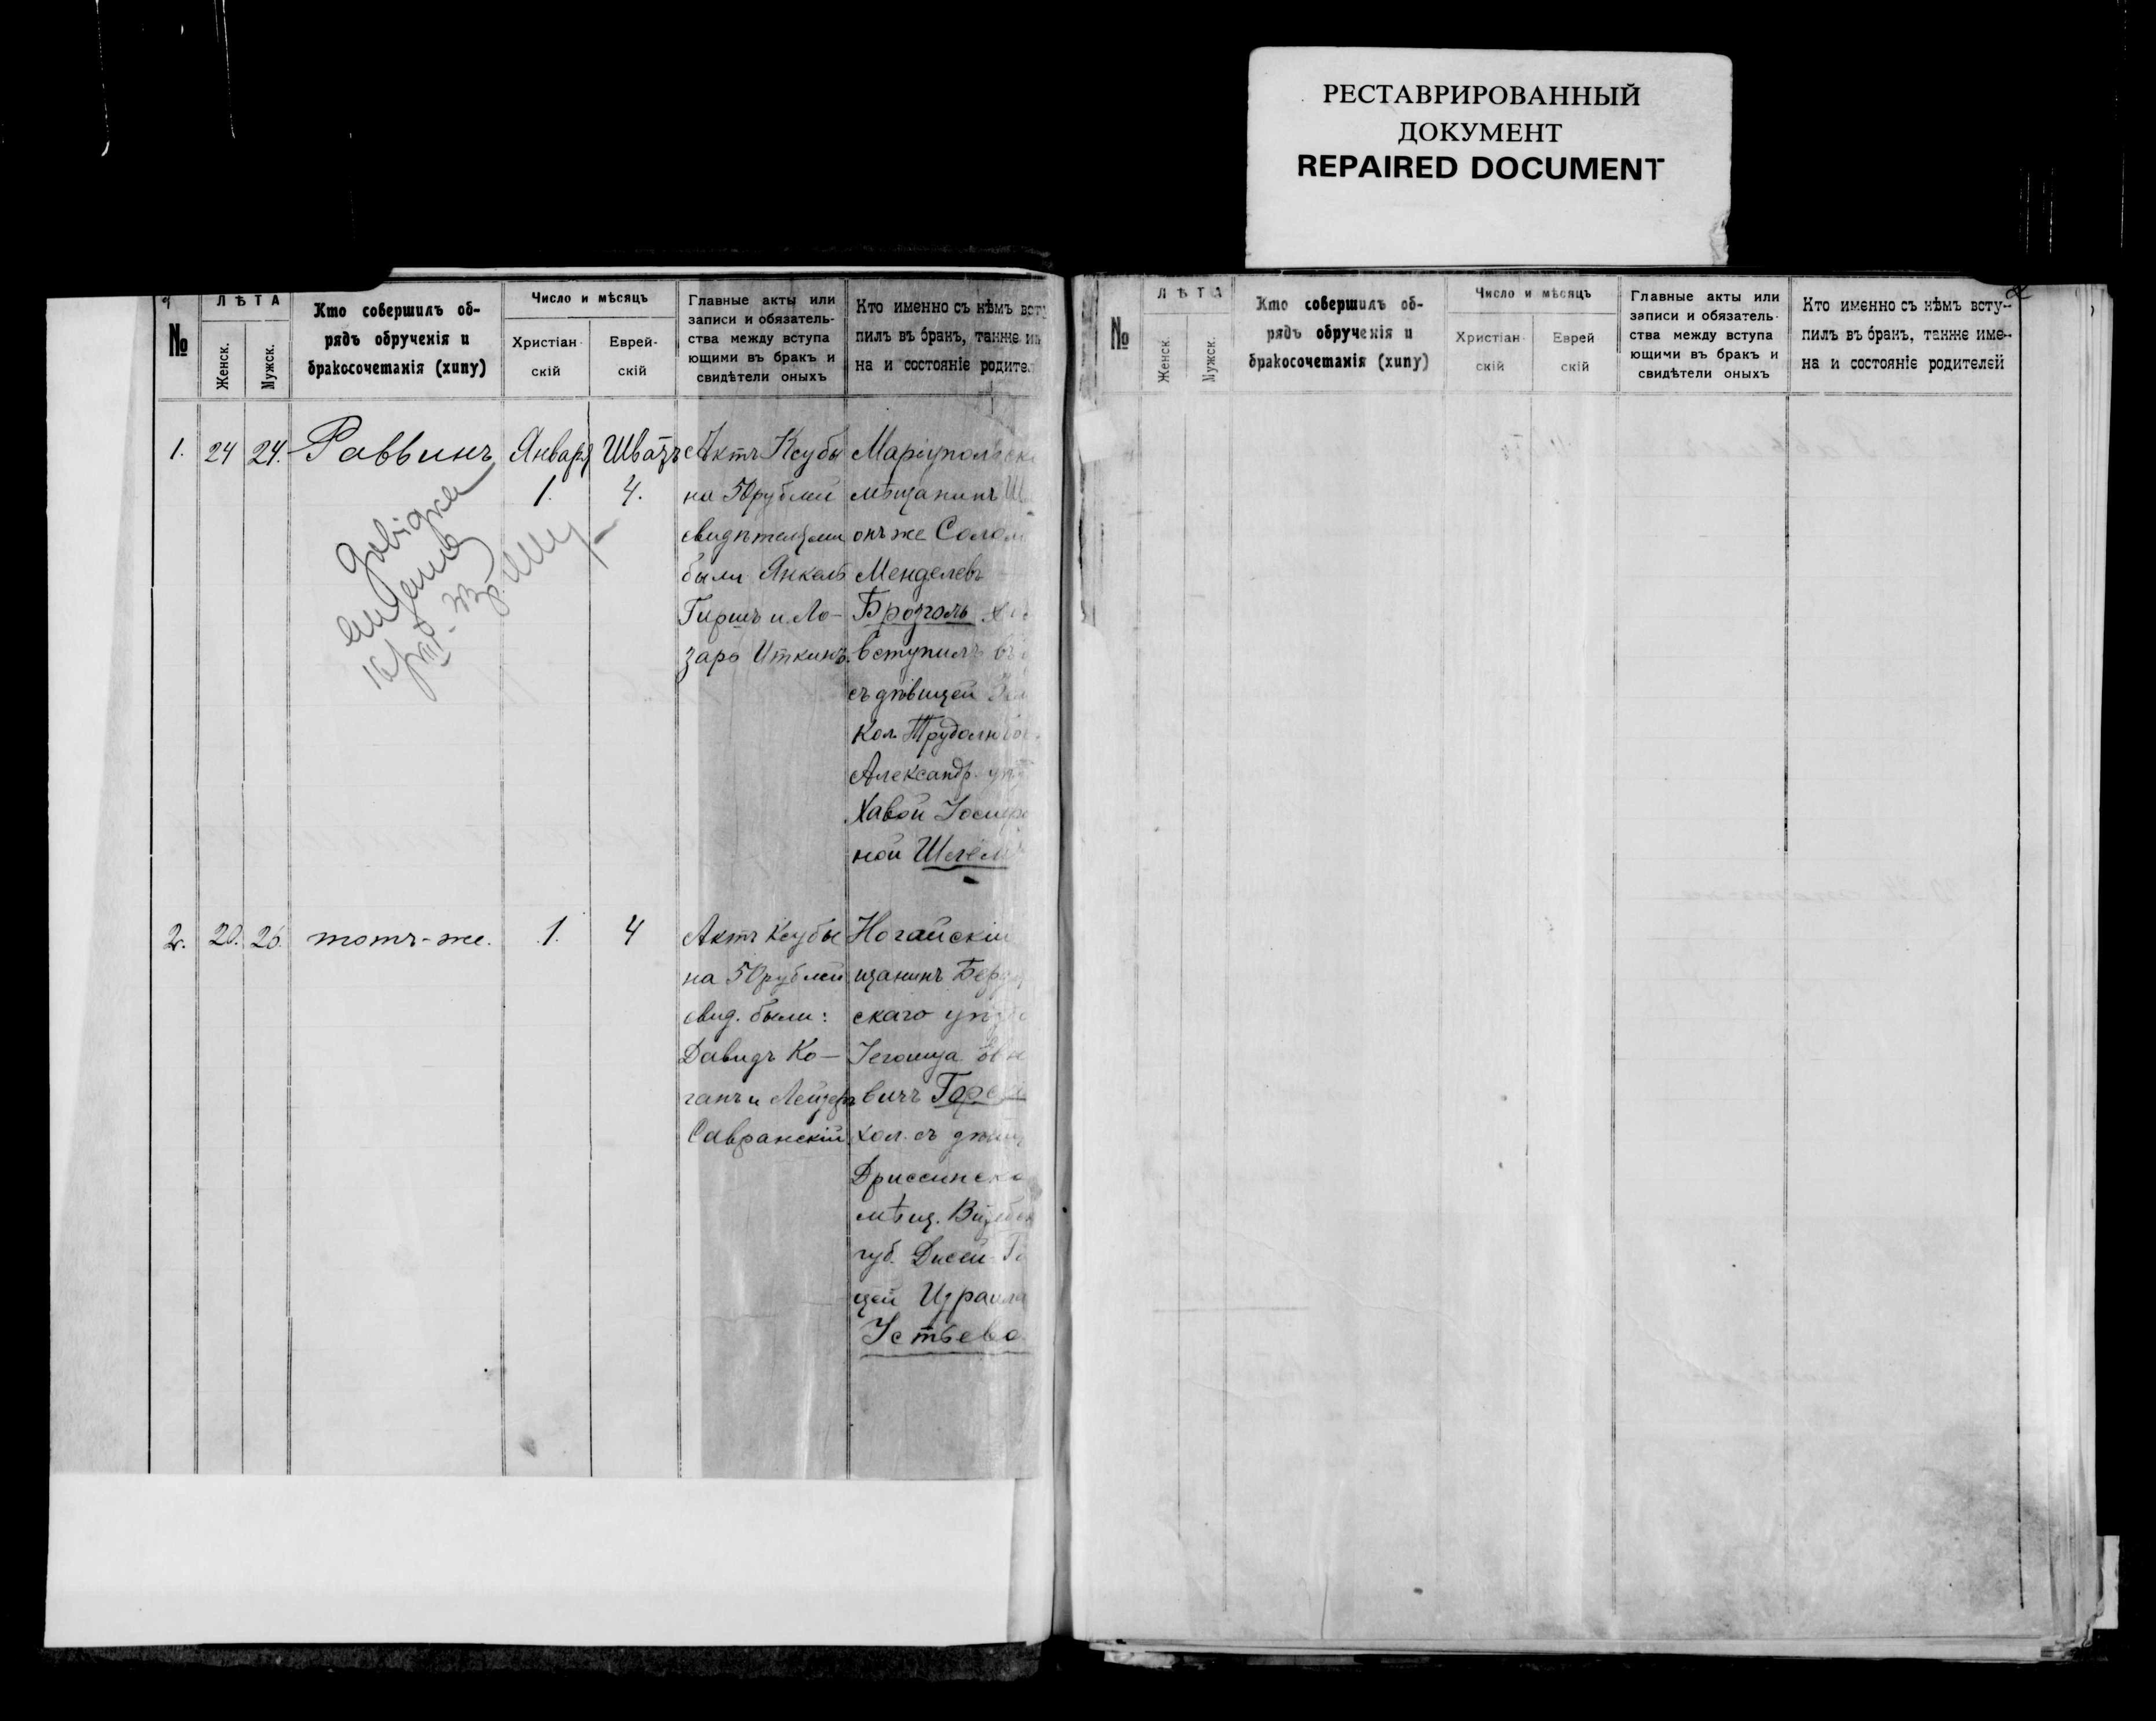 РЕСТАВРИРОВАННЫЙ
ДОКУМЕНТ
REPAIRED DOCUMENT
№
ЛѢТА
Женск.
Мужск.
Кто совершилъ об-
рядъ обрученія и
бракосочетанія (хипу)
Число и мѣсяцъ
Христіан-
скій
Еврей-
скій
Главные акты или
записи и обязатель-
ства между вступа
ющими въ бракъ и
свидѣтели оныхъ
Кто именно съ кѣмъ всту
пилъ въ бракъ, также
на и состояніе родител
1.
24
24.
Раввинъ
Января
1.
Шватъ
4.
Актъ Ксубы
на 50 рублей
свидѣтелями
были Янкель
Гиршъ и Ло-
заръ Иткинъ.
Маріупольск
мѣщанинъ
онъ же Солом
Менделевъ
вступилъ въ
съ дѣвицей
кол. Трудолюбов
Александр. уѣз
Хавой
ной
2.
20.
26.
тотъ-же.
1.
4
Актъ Ксубы
на 50 рублей
свид. были:
Давидъ Ко-
ганъ и Лейзеръ
Савранскій
Ногайскій
щанинъ Бердя
скаго уѣзда
вичъ
хол. съ дѣвиц
Дриссинско
мѣщ. Витебск
губ.
цей Израил
Устьево
2
№
ЛѢТА
Женск.
Мужск.
Кто совершилъ об-
рядъ обрученія и
бракосочетанія (хипу)
Число и мѣсяцъ
Христіан-
скій
Еврей
скій
Главные акты или
записи и обязатель-
ства между вступа
ющими въ бракъ и
свидѣтели оныхъ
Кто именно съ кѣмъ всту-
пилъ въ бракъ, также име-
на и состояніе родителей